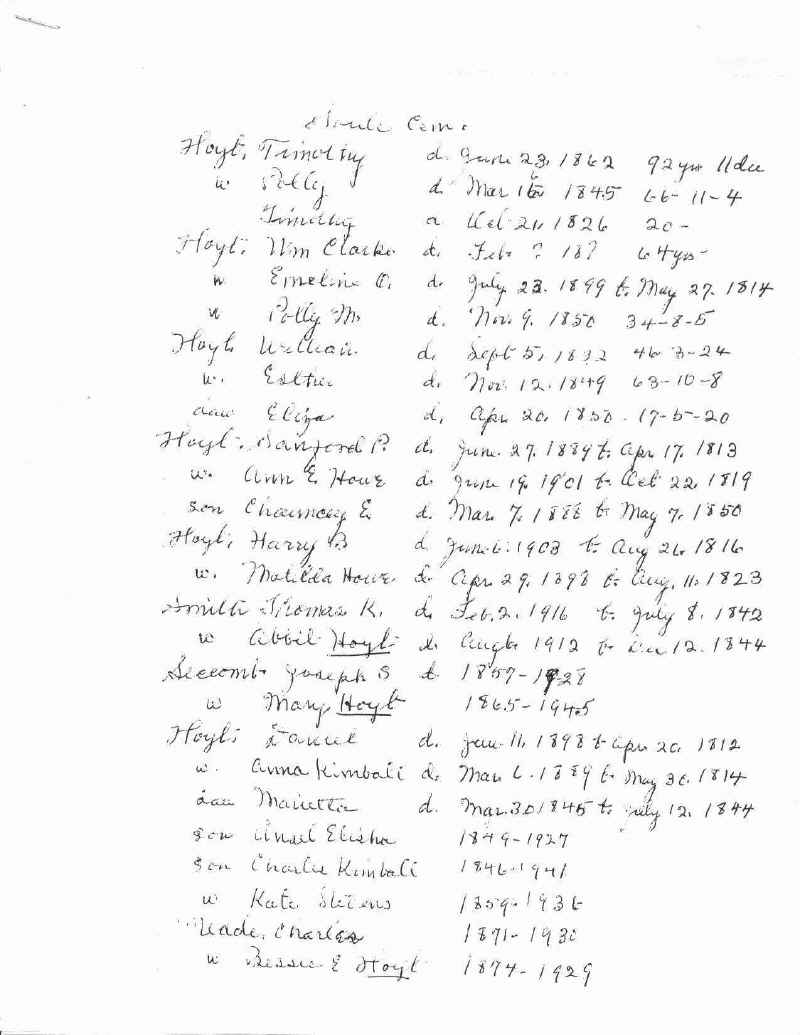 Cem.
Hoyt, Timothy d. June 23, 1862 92 yrs 11 da
w Polly d. Mar 16 1845 66-11-4
Timothy d Oct 21, 1826 20-
Hoyt, Wm Clarke d. Feb ? 18? 64 yrs-
w Emeline O. d. July 23. 1899 b. May 27. 1814
w Polly M. d. Nov. 9. 1850 34-8-5
Hoyt William d. Sept 5, 1832 46 3-24
w. Esther d. Nov. 12. 1849 63-10-8
dau Eliza d. Apr 20, 1850. 17-5-20
Hoyt, Sanford P. d. June. 27. 1889 b. Apr. 17. 1813
w. Ann E. Howe d. June 19. 1901 b. Oct 22, 1819
son Chauncey E. d. Mar. 7. 1888 b May 7, 1850
Hoyt, Harry B d June 6. 1903 b. Aug 26, 1816
w. Matilda Howe d. Apr 29. 1898 b. Aug. 11. 1823
Smith Thomas K. d. Feb. 2. 1916 b. July 8. 1842
w Abbie Hoyt d. Aug 1912 b. Dec 12. 1844
Seccomb Joseph S d 1857-1928
w Mary Hoyt 1865-1945
Hoyt, Daniel d. Jan. 11, 1898 b Apr 20, 1812
w. Anna Kimball d. Mar 6. 1889 b. May 30. 1814
dau Marietta d. Mar. 30 1845 b. July 12. 1844
son Ansel Elisha 1849-1927
son Charlie Kimball 1846-1941
w Kate Stevens 1859-1936
Meade, Charles 1871-1930
w Bessie E Hoyt 1874-1929